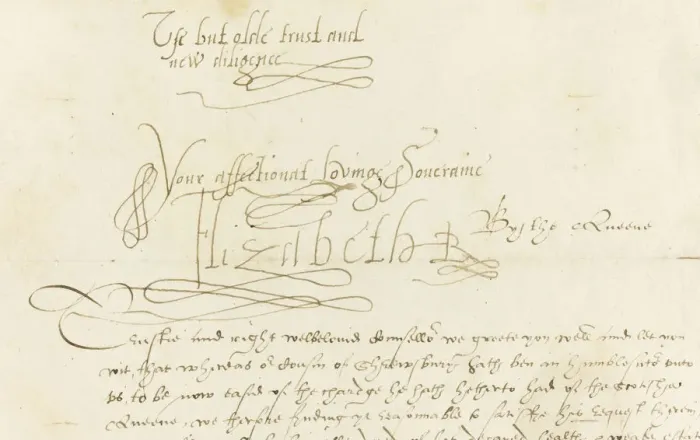 Use but olde trust and
new diligence
Your affectionat loving Soveraine
Elizabeth R
By the Queene
Trustie and right welbelovid Counsellor we greete you well and let you
wit, that whereas or Cousin of Shrewsbury hath ben an humble sutor unto
us, to be now eased of the chardge he hath hetherto had of the Scotishe
Queene, we therfore finding yt reasonnable to satisfie his request